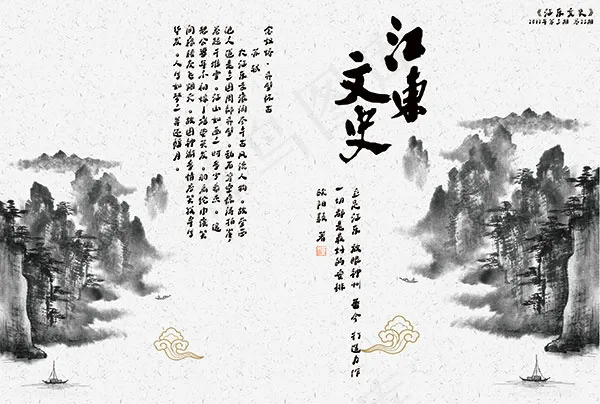 《江东文史》
江東
文史
立足江东 放眼神州
一切都是最好的安排
念奴娇·赤壁怀古
苏轼
大江东去浪淘尽千古风流人物。故垒西
边人道是三国周郎赤壁。乱石穿空惊涛拍岸
卷起千堆雪。江山如画一时多少豪杰。遥
想公瑾当年小乔初嫁了雄姿英发。羽扇纶巾谈笑
间樯橹灰飞烟灭。故国神游多情应笑我早生
华发。人生如梦一尊还酹江月。